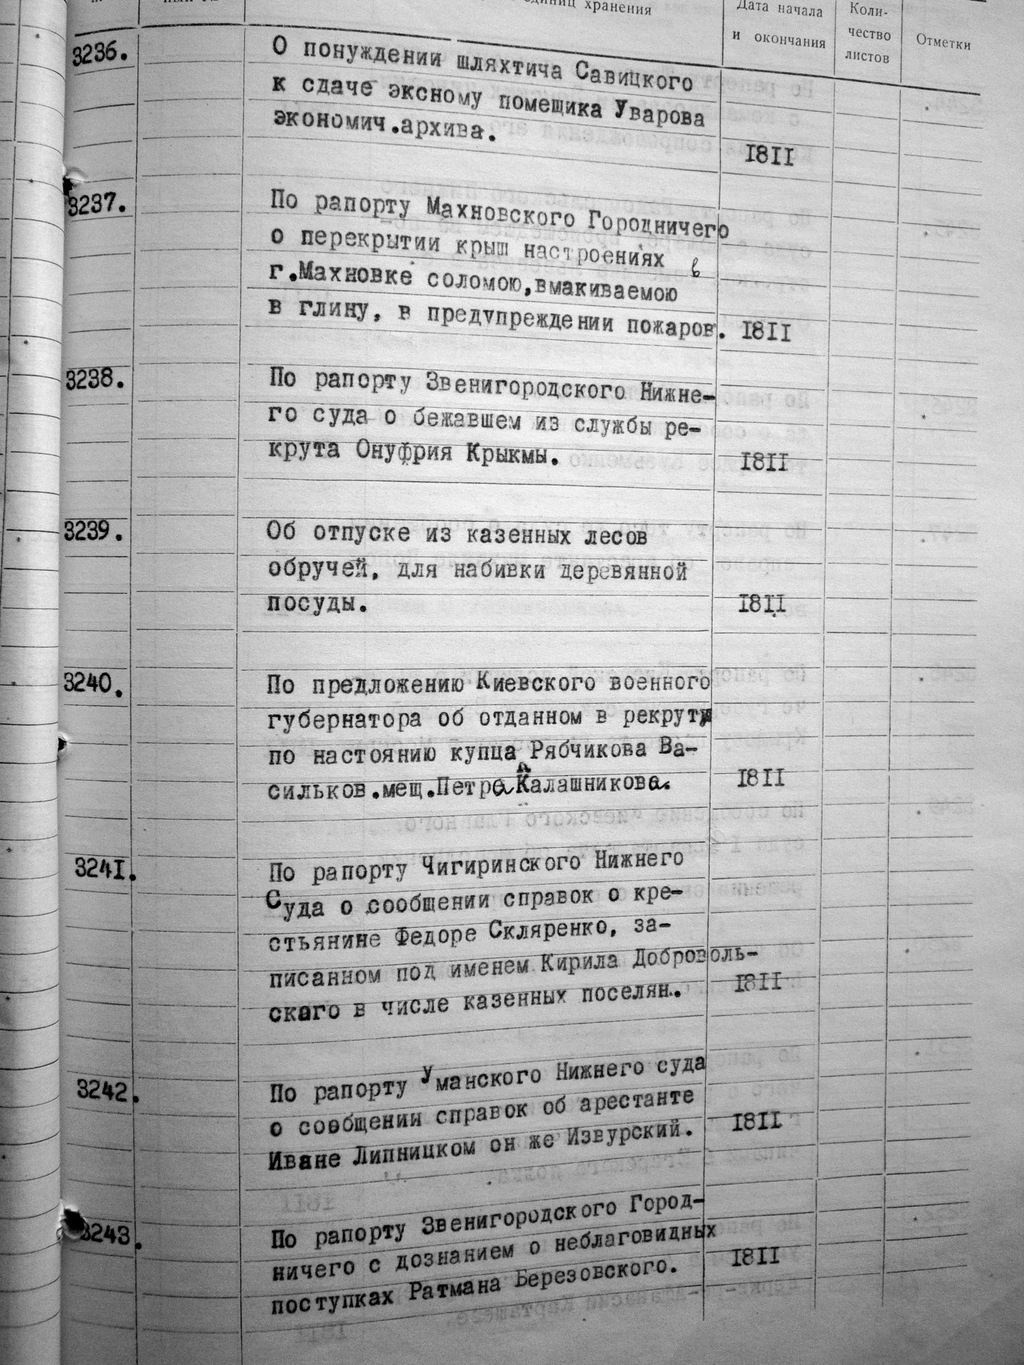 единиц хранения
Дата начала
и окончания
Коли-
чество
листов
Отметки
3236.
О понуждении шляхтича Савицкого
к сдаче эксному помещика Уварова
экономич.архива.
1811
3237.
По рапорту Махновского Городничего
о перекрытии крыш настроениях в
г.Махновке соломою,вмакиваемою
в глину, в предупреждении пожаров.
1811
3238.
По рапорту Звенигородского Нижне-
го суда о бежавшем из службы ре-
крута Онуфрия Крыкмы.
1811
3239.
Об отпуске из казенных лесов
обручей, для набивки деревянной
посуды.
1811
3240.
По предложению Киевского военного
губернатора об отданном в рекруты
по настоянию купца Рябчикова Ва-
сильков.мещ.Петра Калашникова.
1811
3241.
По рапорту Чигиринского Нижнего
Суда о сообщении справок о кре-
стьянине Федоре Скляренко, за-
писанном под именем Кирила Доброволь-
ского в числе казенных поселян.
1811
3242.
По рапорту Уманского Нижнего суда
о сообщении справок об арестанте
Иване Липницком он же Извурский.
1811
3243.
По рапорту Звенигородского Город-
ничего с дознанием о неблаговидных
поступках Ратмана Березовского.
1811